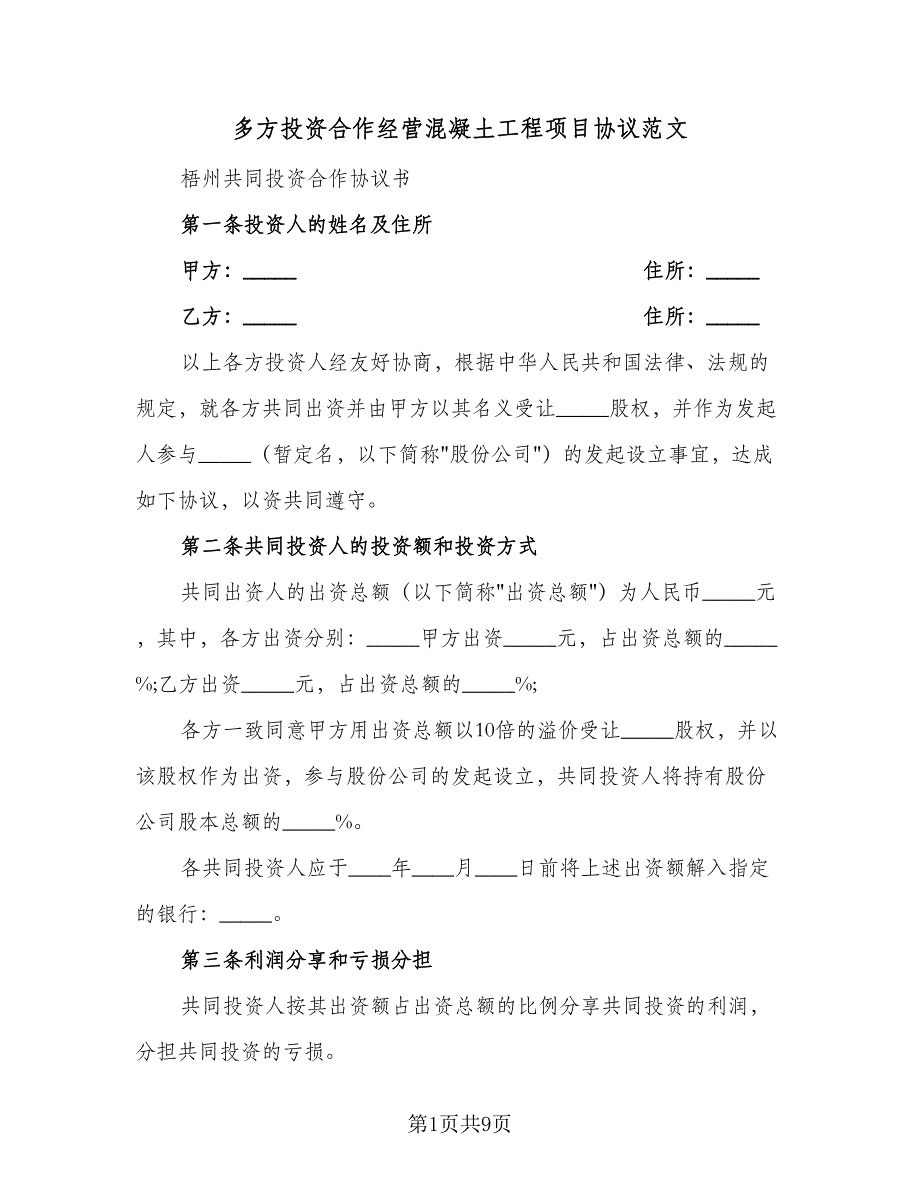 多方投资合作经营混凝土工程项目协议范文
梧州共同投资合作协议书
第一条投资人的姓名及住所
甲方：_____ 住所：_____
乙方：_____ 住所：_____
以上各方投资人经友好协商，根据中华人民共和国法律、法规的
规定，就各方共同出资并由甲方以其名义受让_____股权，并作为发起
人参与_____（暂定名，以下简称"股份公司"）的发起设立事宜，达成
如下协议，以资共同遵守。
第二条共同投资人的投资额和投资方式
共同出资人的出资总额（以下简称"出资总额"）为人民币_____元
，其中，各方出资分别：_____甲方出资_____元，占出资总额的_____
%;乙方出资_____元，占出资总额的_____%;
各方一致同意甲方用出资总额以10倍的溢价受让_____股权，并以
该股权作为出资，参与股份公司的发起设立，共同投资人将持有股份
公司股本总额的_____%。
各共同投资人应于____年____月____日前将上述出资额解入指定
的银行：_____。
第三条利润分享和亏损分担
共同投资人按其出资额占出资总额的比例分享共同投资的利润，
分担共同投资的亏损。
第1页共9页